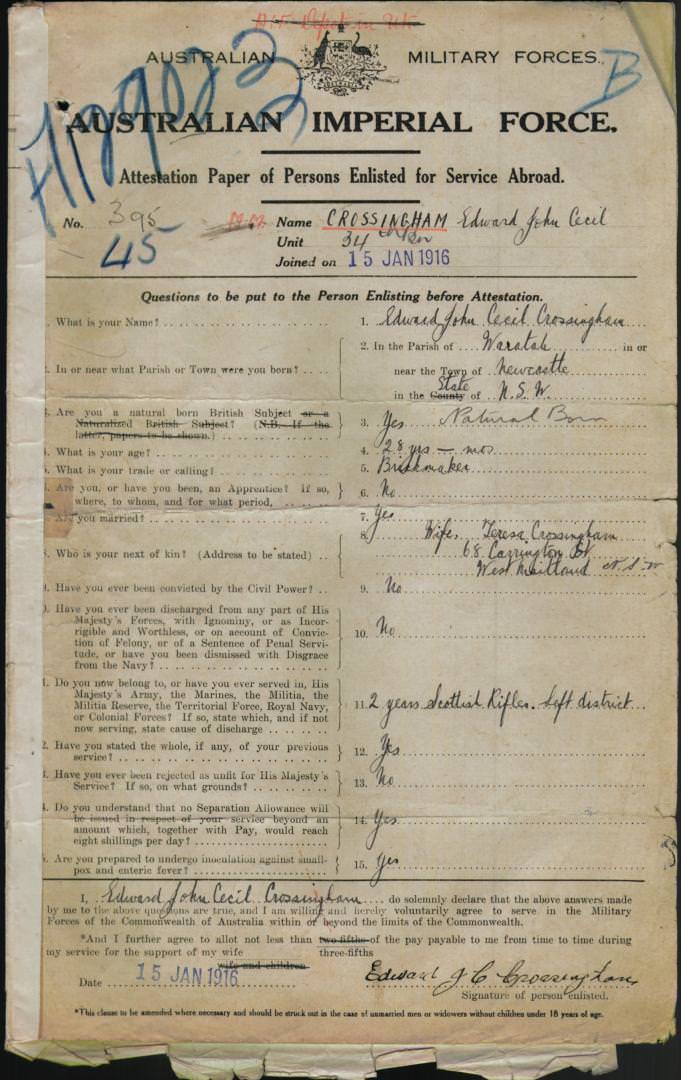 A.I.F. Depots in U.K.
AUSTRALIAN MILITARY FORCES.
B
AUSTRALIAN IMPERIAL FORCE.
Attestation Paper of Persons Enlisted for Service Abroad.
No. 395 M.M. Name CROSSINGHAM Edward John Cecil
45 Unit 34th Bn
Joined on 15 JAN 1916
Questions to be put to the Person Enlisting before Attestation.
. What is your Name? 1. Edward John Cecil Crossingham
2. In the Parish of Waratah in or
. In or near what Parish or Town were you born? near the Town of Newcastle
in the County State of N.S.W.
. Are you a natural born British Subject or a
Naturalized British Subject? (N.B. If the 3. Yes Natural Born
latter, papers to be shown.)
. What is your age? 4. 28 yrs — mos
. What is your trade or calling? 5. Brickmaker
. Are you, or have you been, an Apprentice? If so,
where, to whom, and for what period, 6. No
. Are you married? 7. Yes
8. Wife, Teresa Crossingham
. Who is your next of kin? (Address to be stated) 68 Carrington St
West Maitland N.S.W
. Have you ever been convicted by the Civil Power? 9. No
. Have you ever been discharged from any part of His
Majesty's Forces, with Ignominy, or as Incor-
rigible and Worthless, or on account of Convic-
tion of Felony, or of a Sentence of Penal Servi- 10. No
tude, or have you been Dismissed with Disgrace
from the Navy?
1. Do you now belong to, or have you ever served in, His
Majesty's Army, the Marines, the Militia, the
Militia Reserve, the Territorial Force, Royal Navy, 11. 2 years Scottish Rifles. Left district
or Colonial Forces? If so, state which, and if not
now serving, state cause of discharge
2. Have you stated the whole, if any, of your previous
service? 12. Yes
. Have you ever been rejected as unfit for His Majesty's
Service? If so, on what grounds? 13. No
. Do you understand that no Separation Allowance will
be issued in respect of your service beyond an
amount which, together with Pay, would reach 14. Yes
eight shillings per day?
. Are you prepared to undergo inoculation against small-
pox and enteric fever? 15. Yes
I, Edward John Cecil Crossingham do solemnly declare that the above answers made
by me to the above questions are true, and I am willing and hereby voluntarily agree to serve in the Military
Forces of the Commonwealth of Australia within or beyond the limits of the Commonwealth.
*And I further agree to allot not less than two-fifths of the pay payable to me from time to time during
three-fifths
my service for the support of my wife
wife and children
Date 15 JAN 1916 Edward J C Crossingham
Signature of person enlisted.
*This clause to be amended where necessary and should be struck out in the case of unmarried men or widowers without children under 18 years of age.